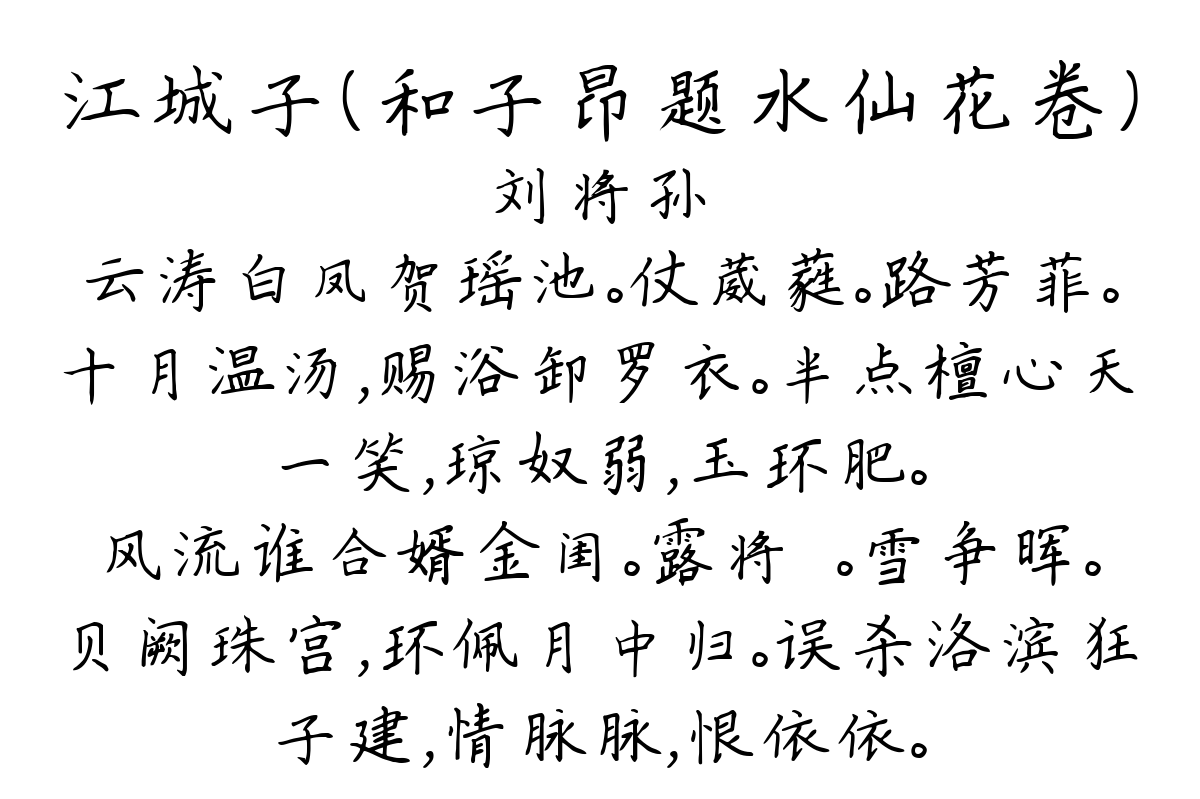 江城子(和子昂题水仙花卷)
刘将孙
云涛白凤贺瑶池。仗葳蕤。路芳菲。
十月温汤,赐浴卸罗衣。半点檀心天
一笑,琼奴弱,玉环肥。
风流谁合婿金闺。露将 。雪争晖。
贝阙珠宫,环佩月中归。误杀洛滨狂
子建,情脉脉,恨依依。